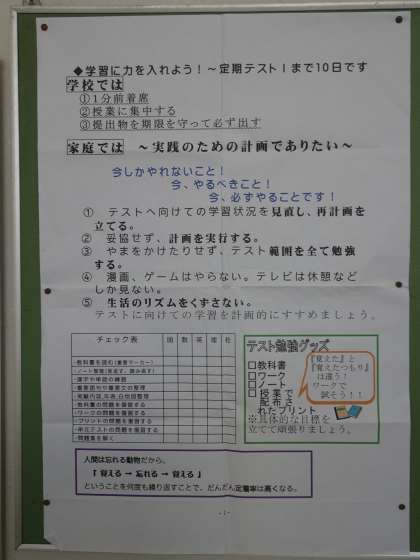 ◆学習に力を入れよう！～定期テストⅠまで10日です
学校では
①1分前着席
②授業に集中する
③提出物を期限を守って必ず出す
家庭では　～実践のための計画でありたい～
今しかやれないこと！
今、やるべきこと！
今、必ずやることです！
①　テストへ向けての学習状況を見直し、再計画を
立てる。
②　妥協せず、計画を実行する。
③　やまをかけたりせず、テスト範囲を全て勉強
する。
④　漫画、ゲームはやらない。テレビは休憩など
しか見ない。
⑤　生活のリズムをくずさない。
テストに向けての学習を計画的にすすめましょう。
チェック表　国　数　英　理　社
・教科書を読む（重要マーカー）
・ノート整理（見直す、読み直す）
・漢字や単語の練習
・重要語句や重要文の整理
・実験内容、年表、白地図整理
・教科書の問題を復習する
・ワークの問題を復習する
・プリントの問題を復習する
・単元テストの問題を復習する
・問題集を解く
テスト勉強グッズ
□教科書
□ワーク
□ノート
□授業で
配布さ
れたプリント
『覚えた』と
『覚えたつもり』
は違う！
ワークで
試そう！！
※具体的な目標を
立てて頑張りましょう。
人間は忘れる動物だから、
「 覚える → 忘れる → 覚える 」
ということを何度も繰り返すことで、だんだん定着率は高くなる。
-1-